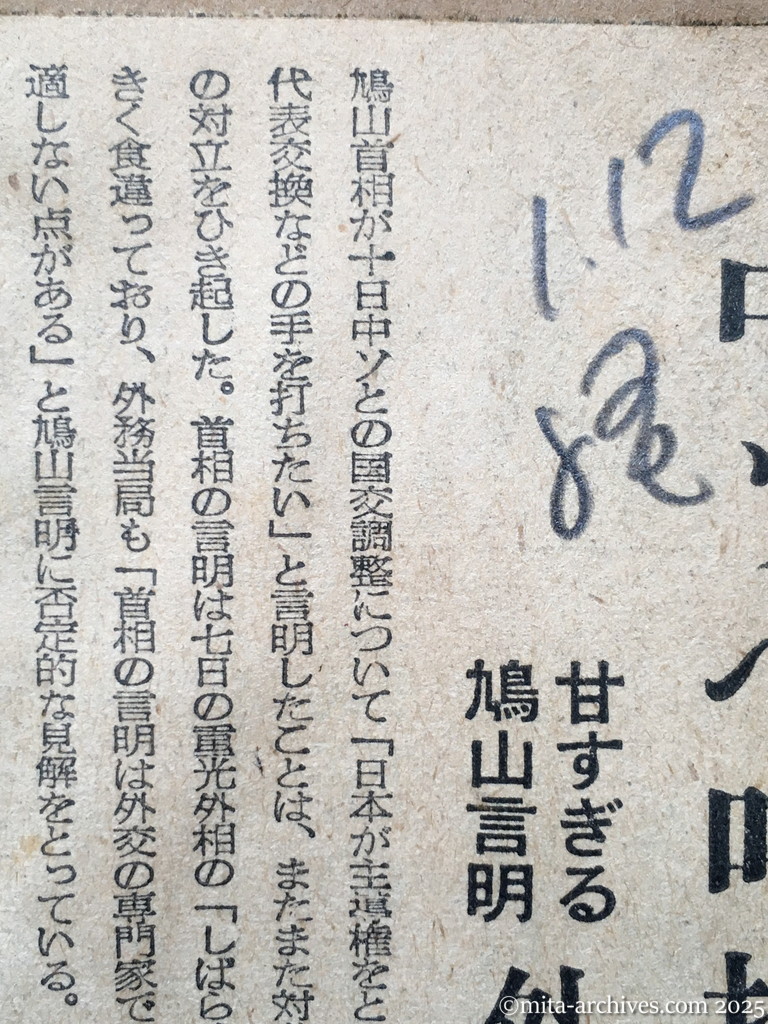 1.12
甘すぎる
鳩山言明
鳩山首相が十日中ソとの国交調整について「日本が主導権をと
代表交換などの手を打ちたい」と言明したことは、またまた対
の対立をひき起した。首相の言明は七日の重光外相の「しばら
きく食違っており、外務当局も「首相の言明は外交の専門家で
適しない点がある」と鳩山言明に否定的な見解をとっている。
©mita-archives.com 2025